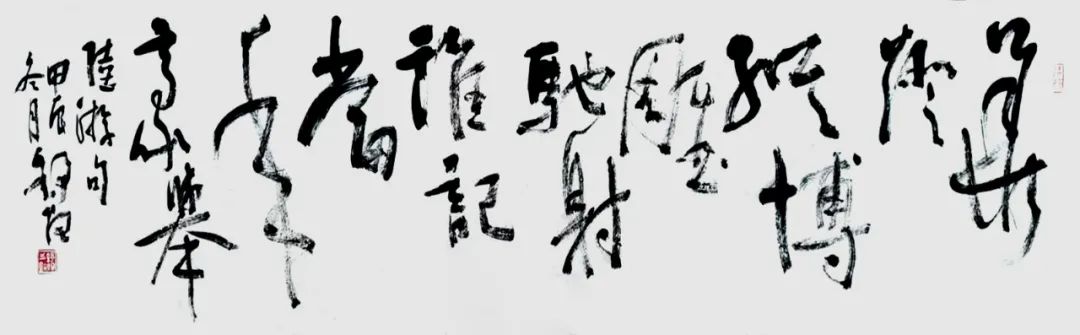 華
燈
縱博
雕鞍
馳射
誰記
當
年
豪舉
陸游句
甲辰
冬月